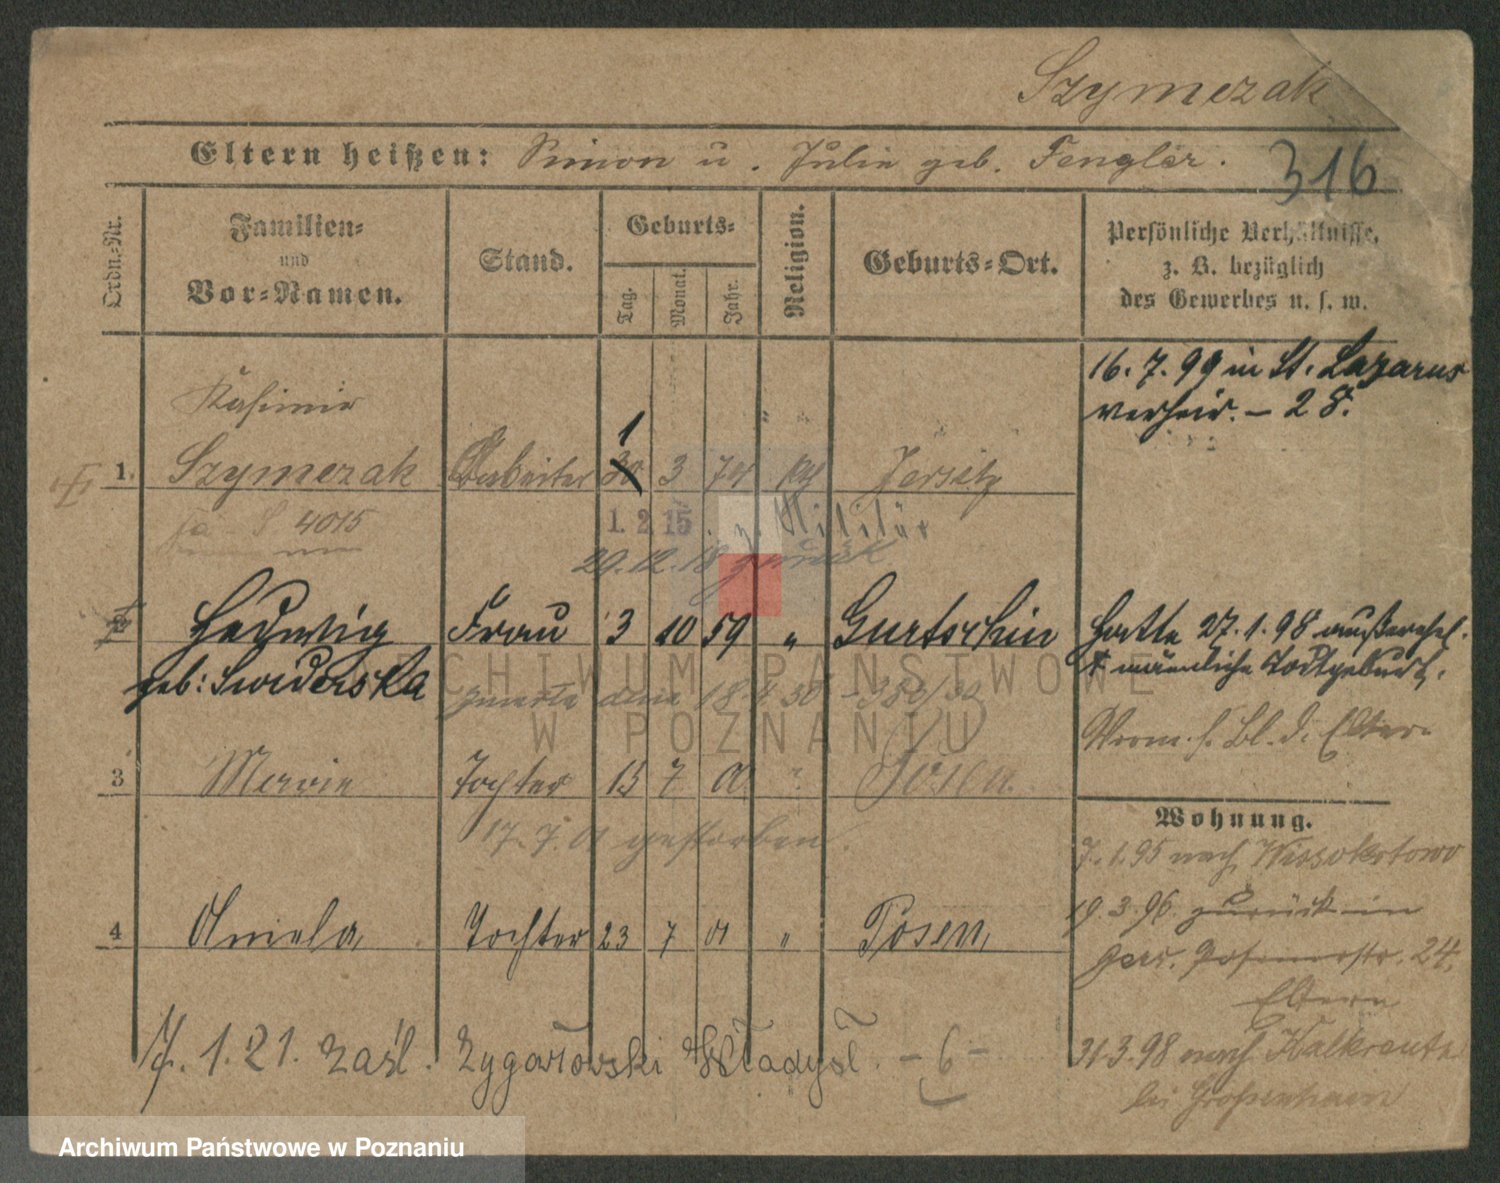 Szymczak
Eltern heißen: Simon u. Julie geb. Fengler.
316
Ordn.-Nr.
Familien-
und
Vor-Namen.
Stand.
Geburts-
Tag.
Monat.
Jahr.
Religion.
Geburts-Ort.
Persönliche Verhältnisse,
z. B. bezüglich
des Gewerbes u. s. w.
16. 7. 99 in St. Lazarus
verheir. – 28.
Kasimir
1. Szymczak Arbeiter 30 1 3 74 kth Jersitz
4015
1. 2 15. z. Militär
29.12.18 zurück
2 Hedwig Frau 3 10 59 " Gurtschin
geb: Swiderska
Hatte 27.1.98 außerehel.
1 männliche Todtgeburt.
zmarła dnia 18.4.30 – 383/30
Verm. s. Bl. d. Eltern
3 Marie Tochter 15 7 01 " Posen
17. 7. 01 gestorben.
Wohnung.
7.1.95 nach Wiosokotowo
19.3.96 zurück in
Gers. Posenerstr. 24.
Eltern
4 Aniela Tochter 23 7 01 " Posen
31.3.98 nach Kalkreuth
bei Großenhain
7. 1. 21. zaśl. Zygarłowski Władysł. – 6 –
ARCHIWUM PAŃSTWOWE
W POZNANIU
Archiwum Państwowe w Poznaniu